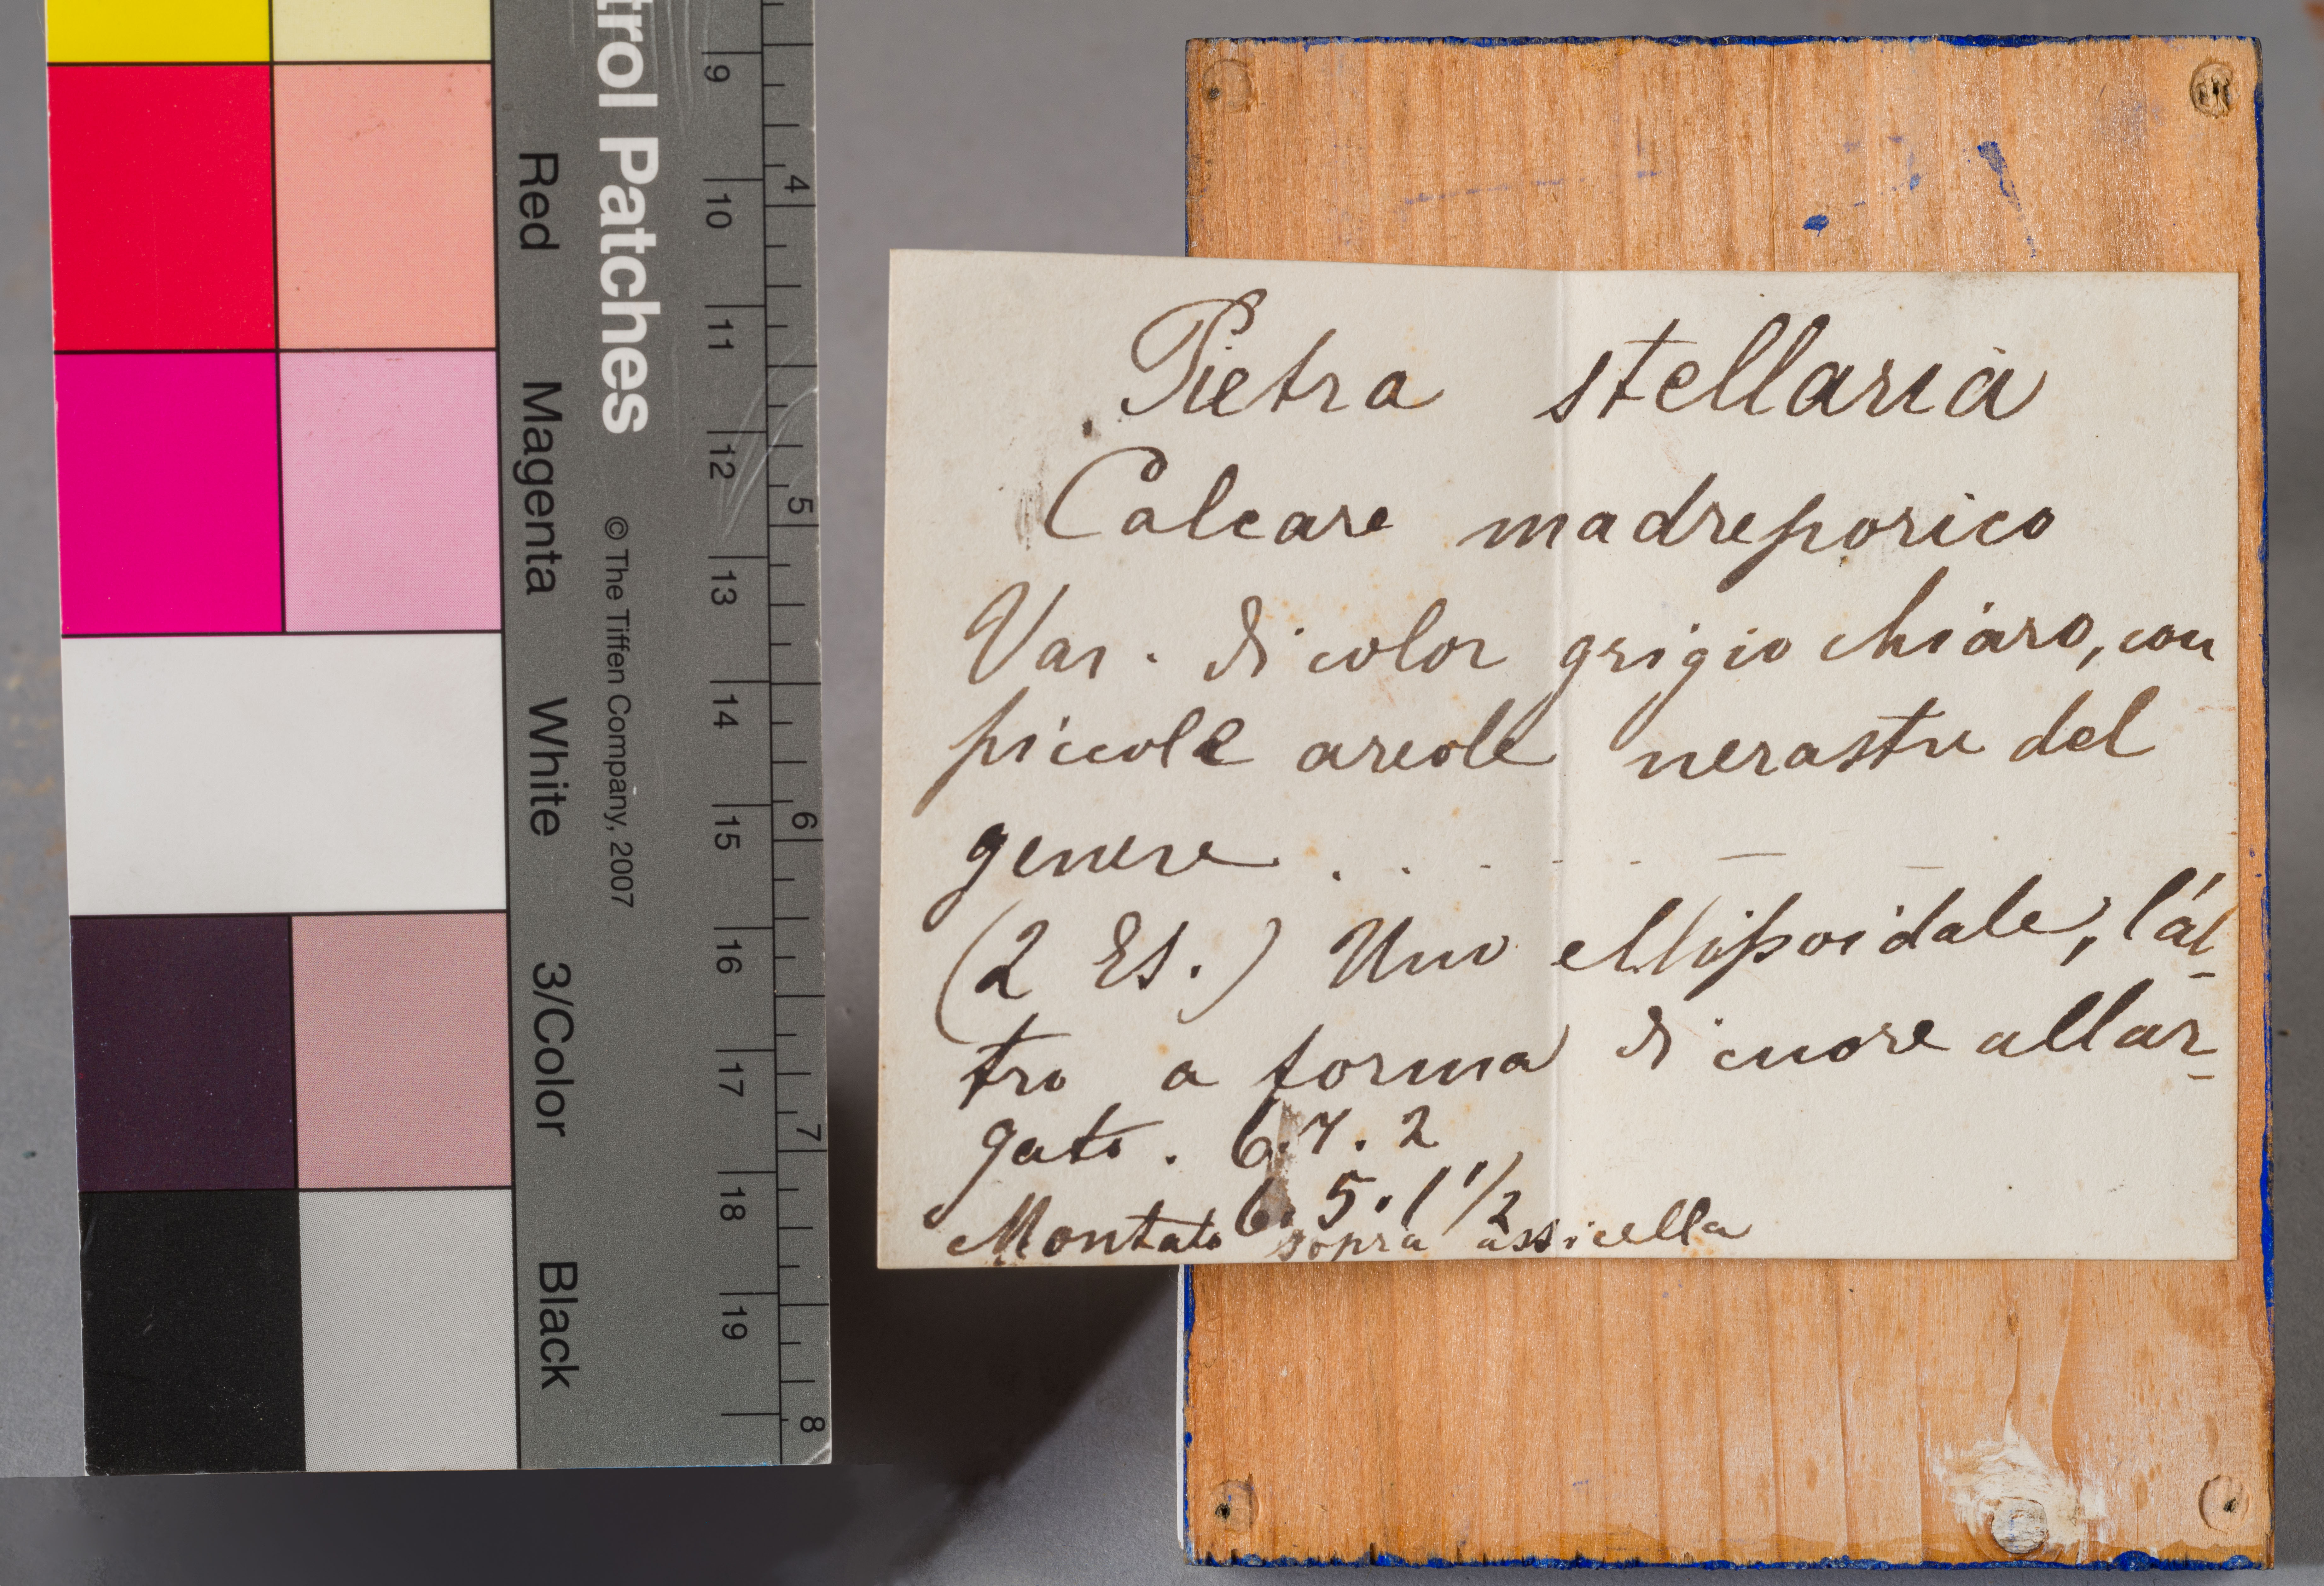 trol Patches
© The Tiffen Company, 2007
Red
Magenta
White
3/Color
Black
9
10
11
12
13
14
15
16
17
18
19
4
5
6
7
8
Pietra stellaria
Calcare madreporico
Var. di color grigio chiaro, con
piccole areole nerastre del
genere . . . . . — —
(2 Es.) Uno ellissoidale, l'al-
tro a forma di cuore allar-
gato. 6.7.2
6.5.1 1/2
Montato sopra assicella